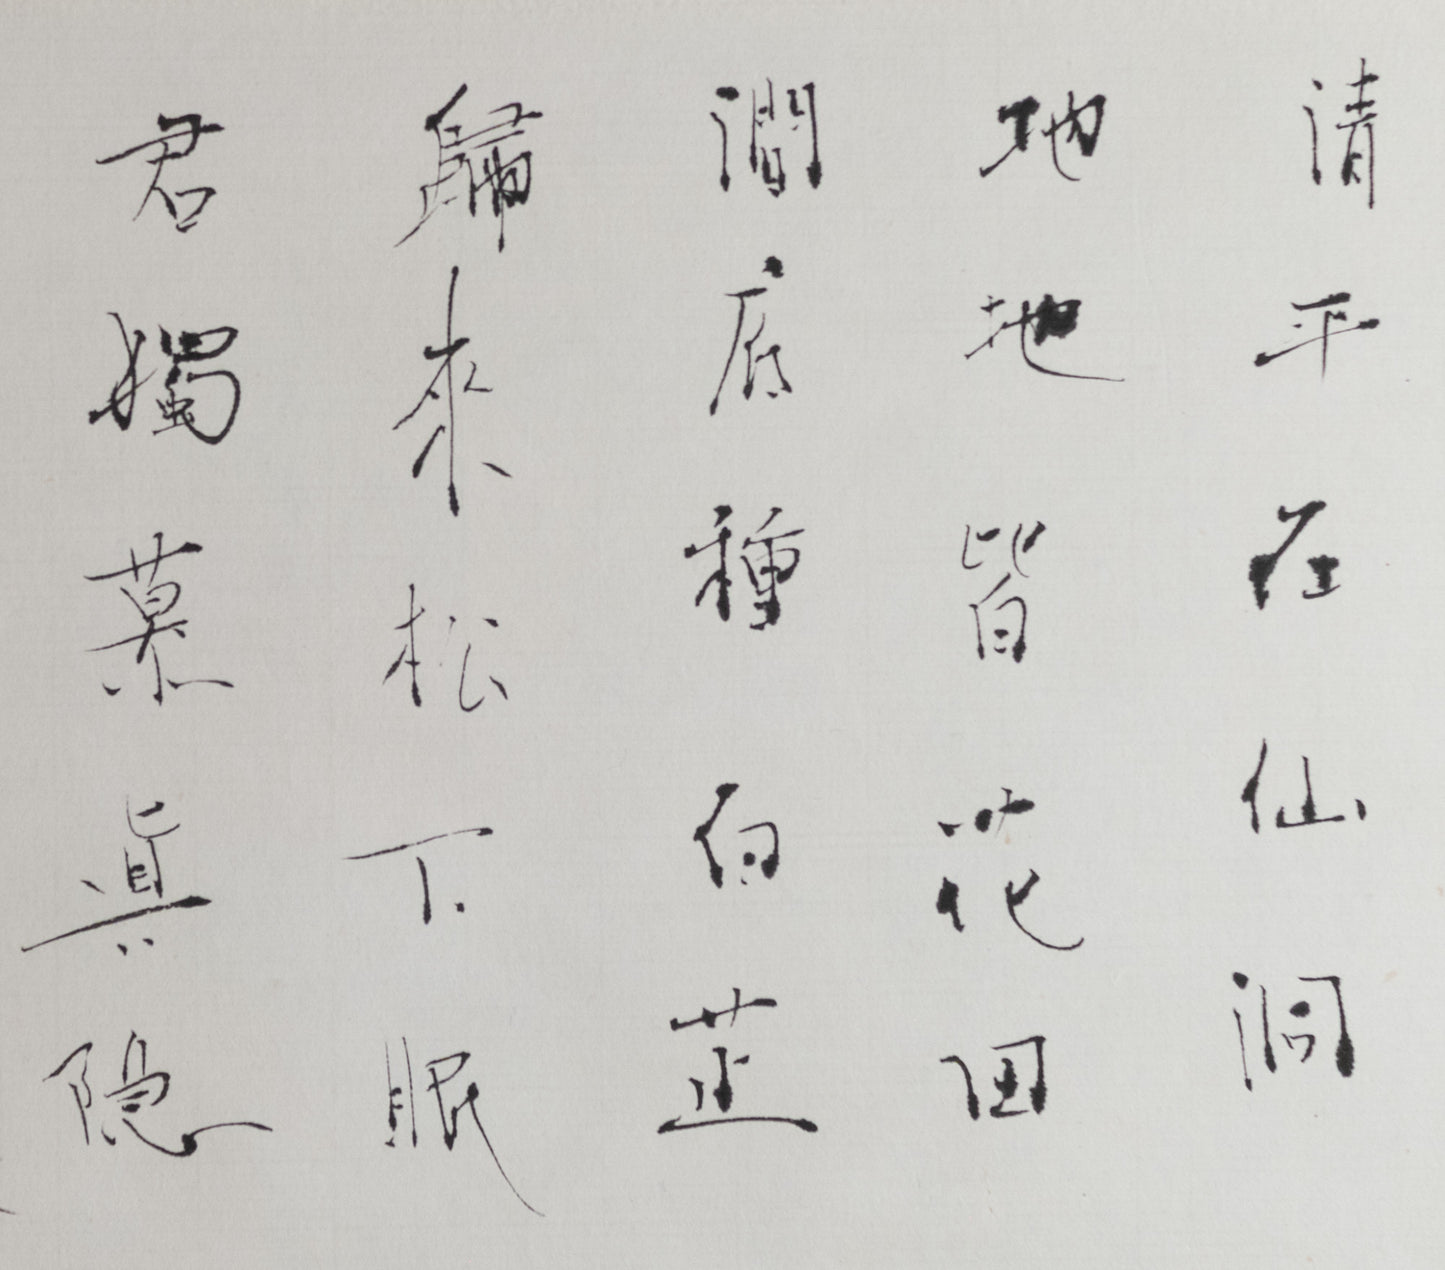 清平在仙洞
地地皆花田
澗底種白芷
歸來松下眠
君獨慕真隱